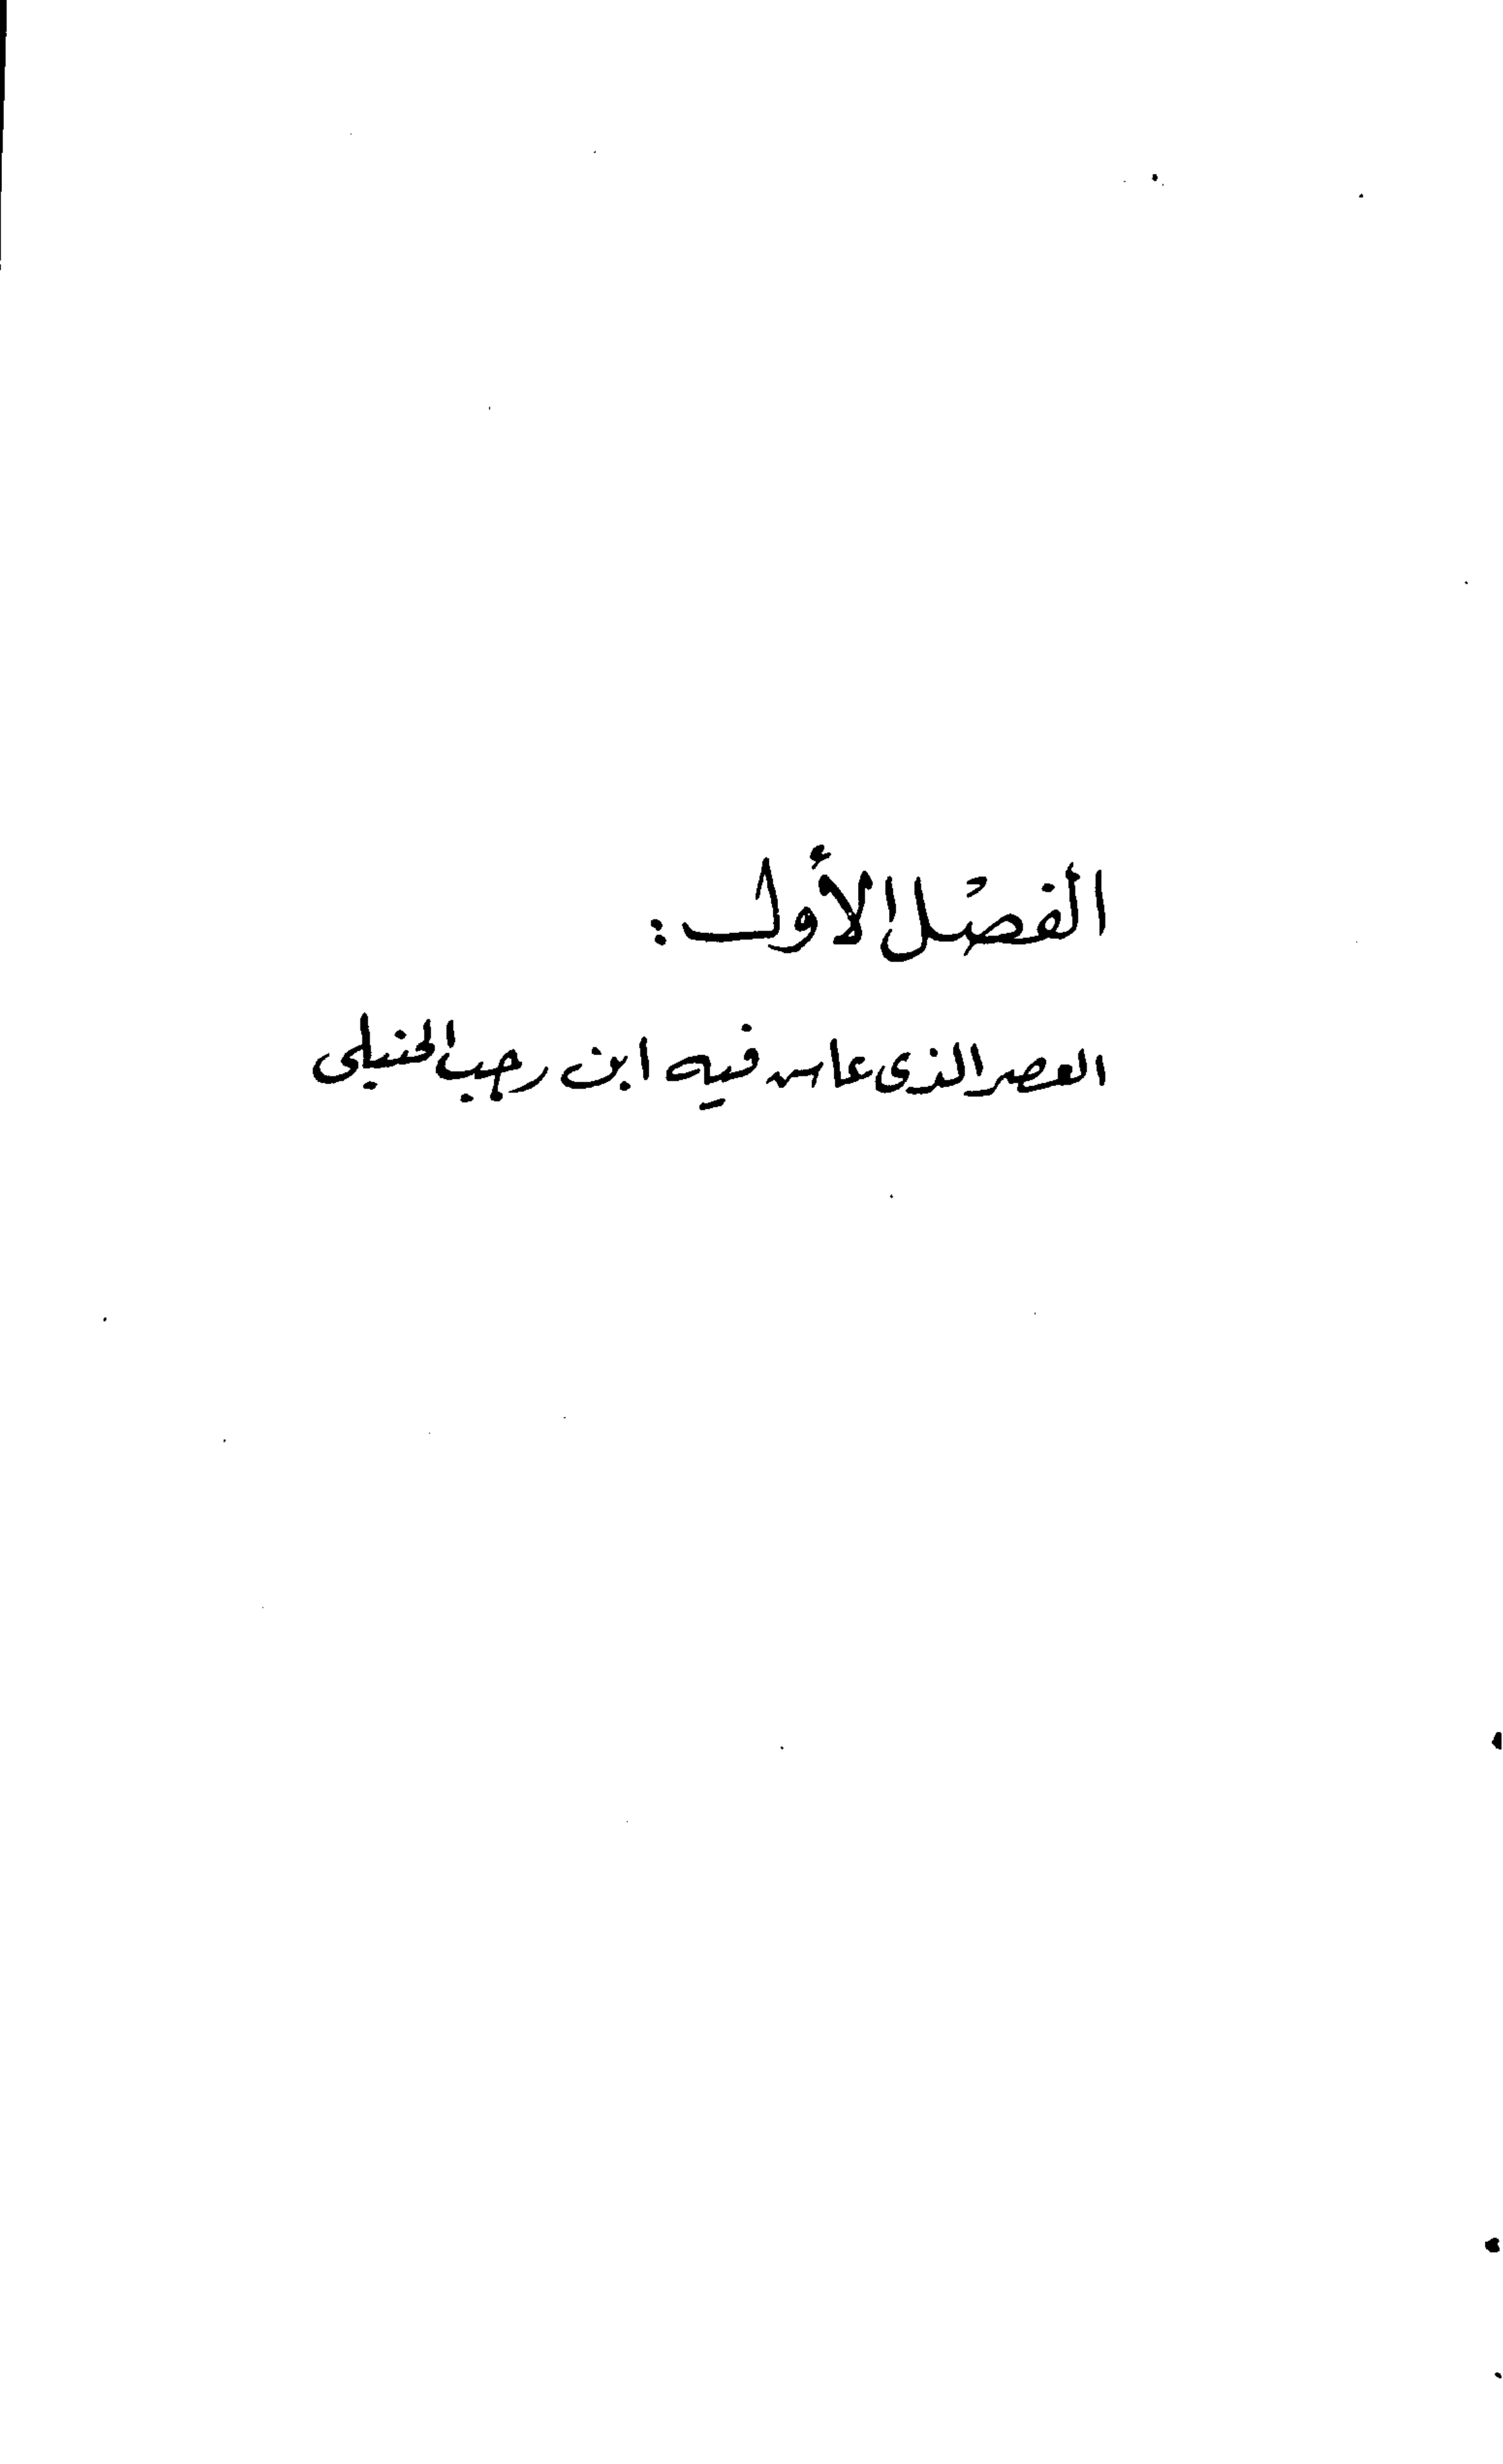 الفصل الأول :
العصر الذى عاش فيه ابن رجب الحنبلى